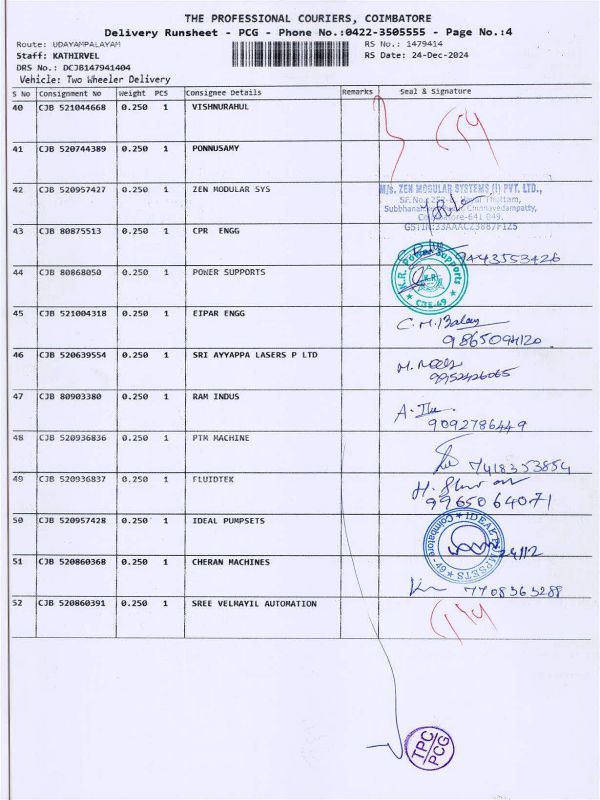 THE PROFESSIONAL COURIERS, COIMBATORE
Delivery Runsheet - PCG - Phone No.:0422-3505555 - Page No.:4
Route: UDAYAMPALAYAM RS No.: 1479414
Staff: KATHIRVEL RS Date: 24-Dec-2024
DRS No.: DCJB147941404
Vehicle: Two Wheeler Delivery
S No Consignment No Weight PCS Consignee Details Remarks Seal & Signature
40 CJB 521044668 0.250 1 VISHNURAHUL
41 CJB 520744389 0.250 1 PONNUSAMY
42 CJB 520957427 0.250 1 ZEN MODULAR SYS
M/s. ZEN MODULAR SYSTEMS (I) PVT. LTD.,
Thottam,
Chinnavedampatty,
Coimbatore-641 049.
GSTIN:33AAACZ3887F1Z5
43 CJB 80875513 0.250 1 CPR ENGG
9443553426
44 CJB 80868050 0.250 1 POWER SUPPORTS
K.R. Power Supports
K.R.
CBE-49
45 CJB 521004318 0.250 1 EIPAR ENGG
C.M.Balaj
9865094120
46 CJB 520639554 0.250 1 SRI AYYAPPA LASERS P LTD
9952426065
47 CJB 80903380 0.250 1 RAM INDUS
9092786449
48 CJB 520936836 0.250 1 PTM MACHINE
7418353854
49 CJB 520936837 0.250 1 FLUIDTEK
9965064071
50 CJB 520957428 0.250 1 IDEAL PUMPSETS
IDEAL PUMPSETS
Coimbatore-49
24/12
51 CJB 520860368 0.250 1 CHERAN MACHINES
7708363288
52 CJB 520860391 0.250 1 SREE VELMAYIL AUTOMATION
TPC
PCG